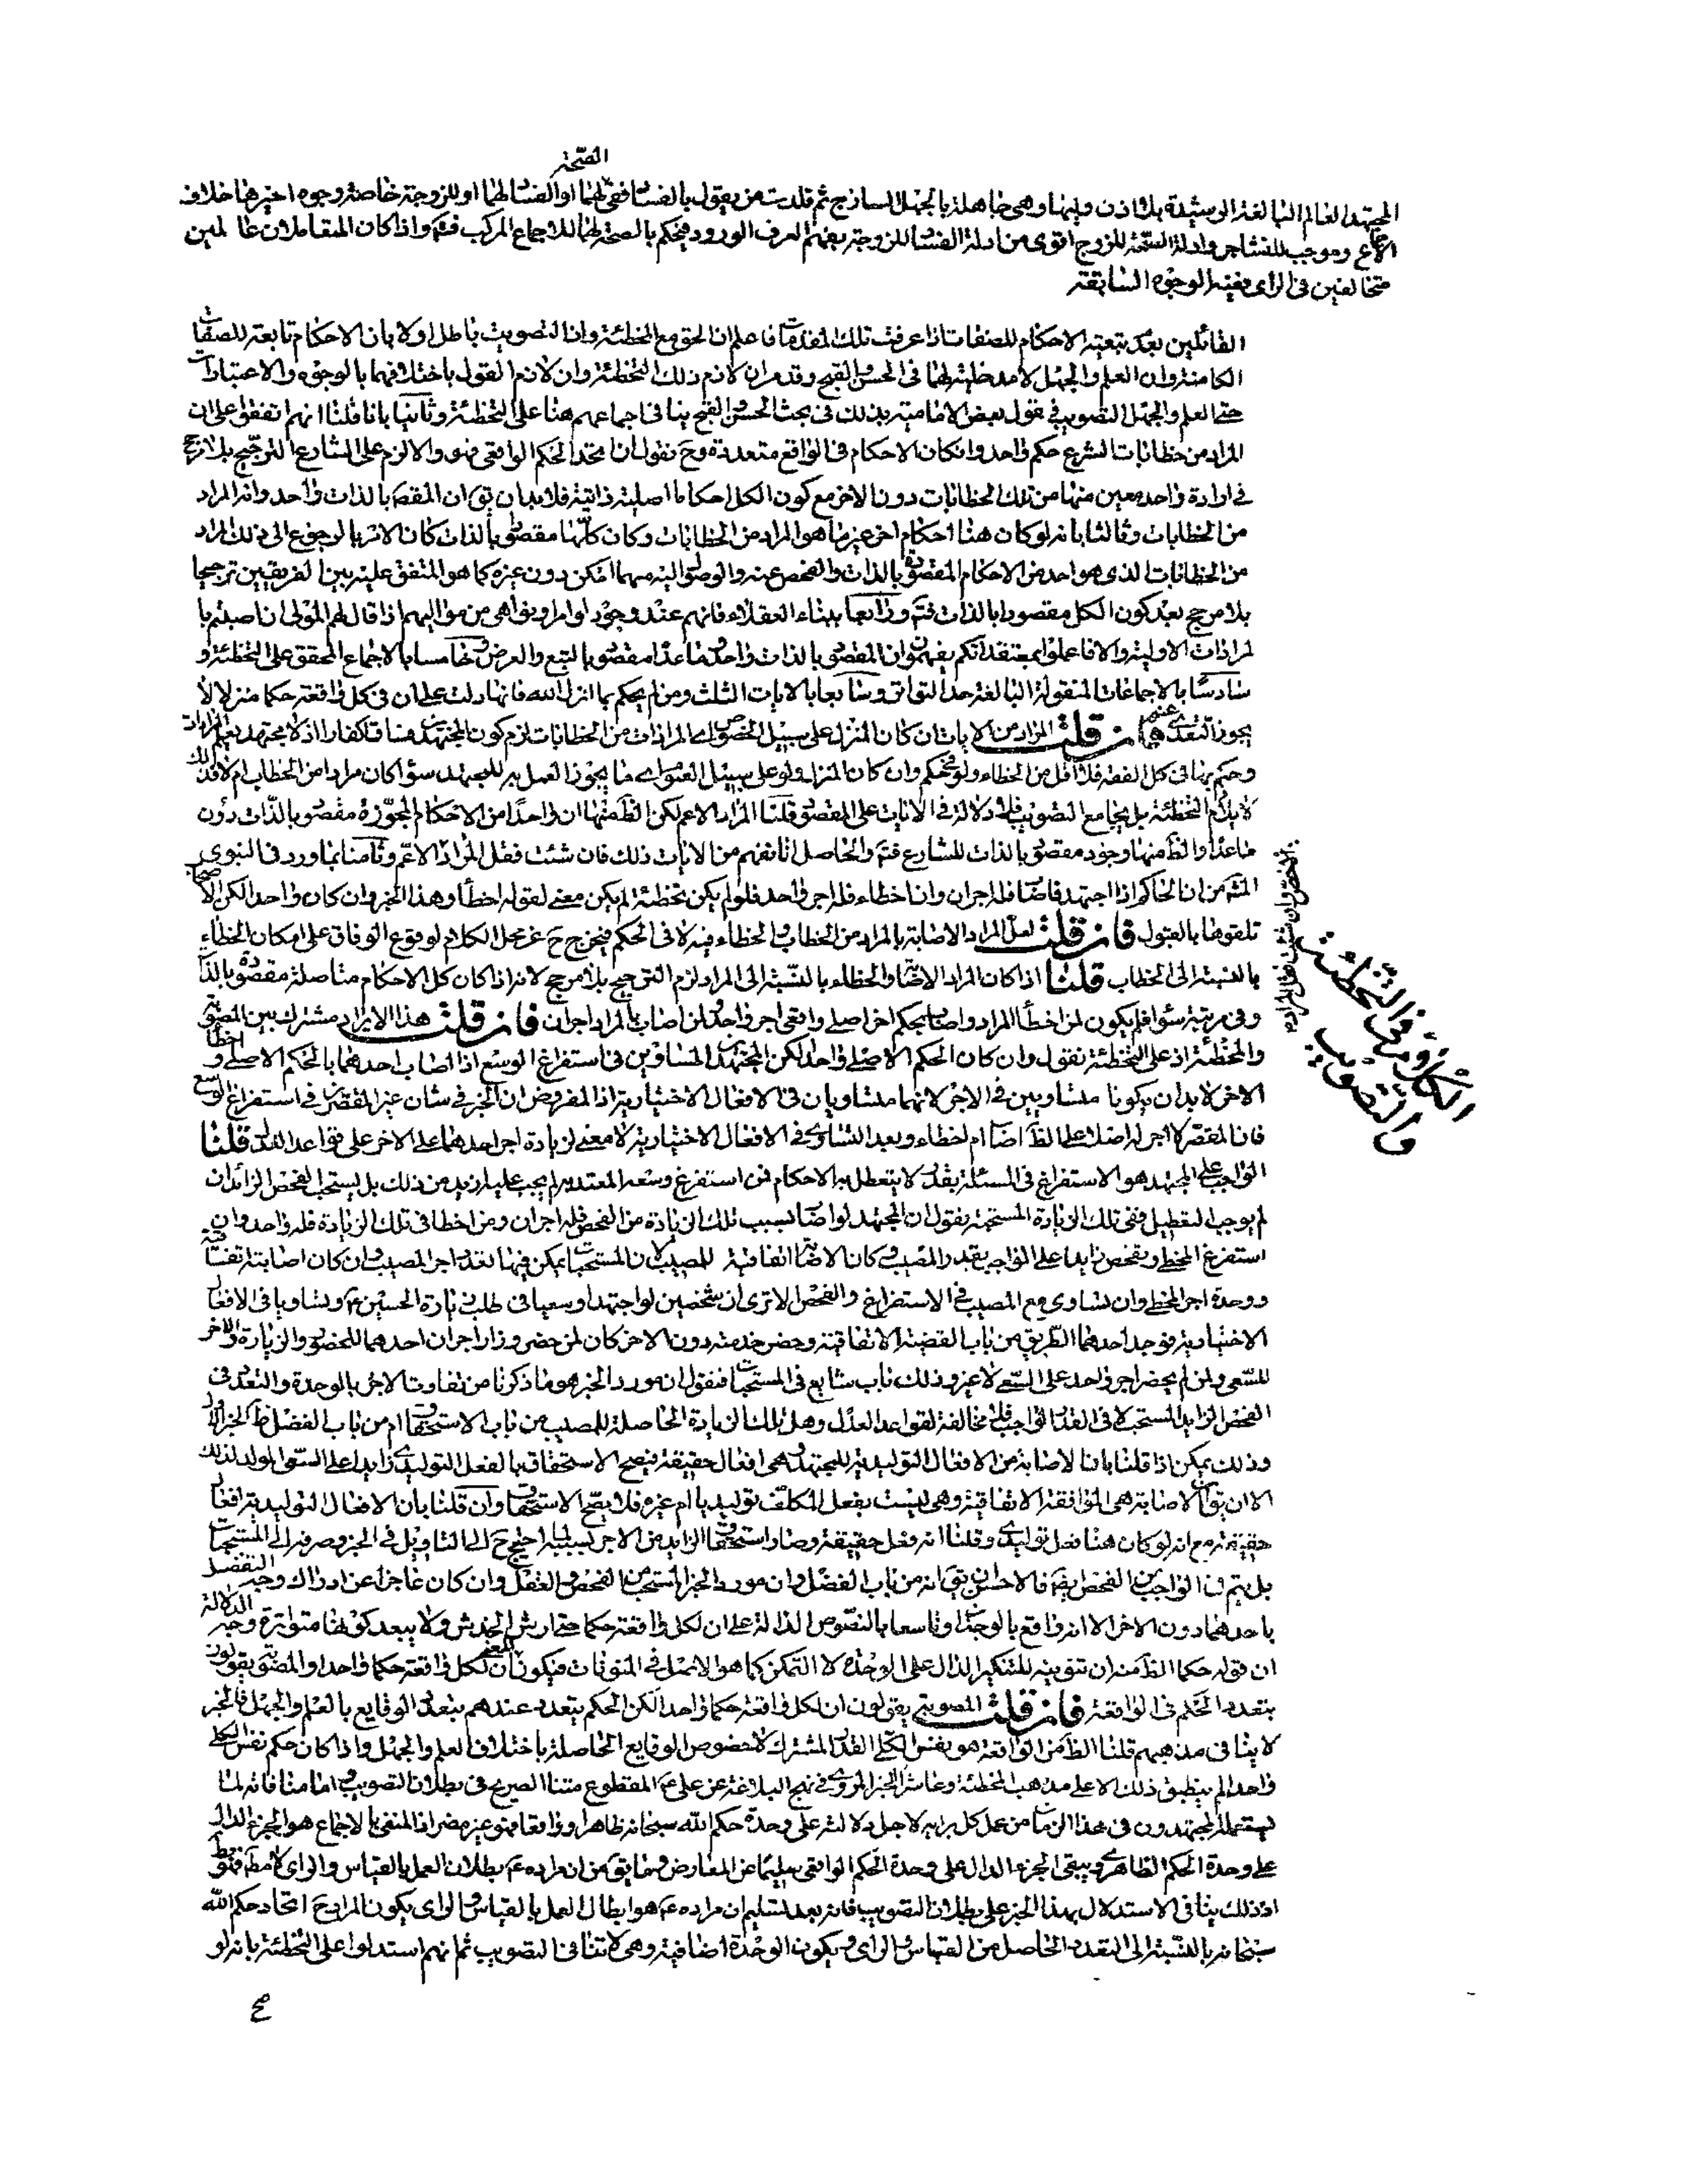 الصحة
المجتهد العالم البالغة الرشيدة بلا اذن وليها وهى جاهلة بالجهل الساذج ثم قلدت من يقول بالفساد ففى لهما او الفساد لهما او للزوجة خاصة وجوه اخيرها خلاف
الاجماع وموجب للتشاجر وادلة الصحة للزوج اقوى من ادلة الفساد للزوجة بفهم العرف الورود فيحكم بالصحة لهما للاجماع المركب فتم واذا كان المتعاملان عالمين
متخالفين فى الراى ففيه الوجوه السابقة
القائلين بعد تبعية الاحكام للصفات اذا عرفت تلك المقدمات فاعلم ان الحق مع المخطئة وان التصويب باطل اولا بان الاحكام تابعة للصفات
الكامنة وان العلم والجهل لا مدخلية لهما فى الحسن والقبح وقد مر ان لازم ذلك التخطئة وان لازم القول باختلافهما بالوجوه والاعتبارات
حتى العلم والجهل التصويب فقول بعض الامامية بذلك فى بحث الحسن والقبح ينافى اجماعهم هنا على التخطئة وثانيا بانا قلنا انهم اتفقوا على ان
المراد من خطابات الشرع حكم واحد وان كان الاحكام فى الواقع متعددة وح نقول ان اتحد الحكم الواقعى فهو والا لزم على الشارع الترجيح بلا مرجح
فى ارادة واحد معين منها من تلك الخطابات دون الاخر مع كون الكل احكاما اصلية ذاتية فلا بد ان يق ان المقصود بالذات واحد وانه المراد
من الخطابات وثالثا بانه لو كان هنا احكام اخر غير ما هو المراد من الخطابات وكان كلها مقصودا بالذات كان الامر بالرجوع الى ذلك المراد
من الخطابات الذى هو واحد من الاحكام المقصودة بالذات والفحص عنه والوصول اليه مهما امكن دون غيره كما هو المتفق عليه بين الفريقين ترجيحا
بلا مرجح بعد كون الكل مقصودا بالذات فتم ورابعا ببناء العقلاء فانهم عند وجود اوامر ونواهى من مواليهم اذا قال لهم المولى ان اصبتم با
لمرادات الاولية والا فاعملوا بمعتقداتكم يفهمون ان المقصود بالذات واحد وما عداه مقصود بالتبع والعرض وخامسا بالاجماع المحقق على التخطئة و
سادسا بالاجماعات المنقولة البالغة حد التواتر وسابعا بالايات الثلث ومن لم يحكم بما انزل الله فانها دلت على ان فى كل واقعة حكما منزلا لا
يجوز التعدى عنه فان قلت المراد من الايات ان كان المنزل على سبيل الخصوص اى المرادات من الخطابات لزم كون المجتهدين فساقا كفارا اذ لا مجتهد يعلم المرادات
وحكم بها فى كل الفقه فلا اقل من الخطاء ولو فى حكم وان كان المنزل ولو على سبيل العموم اى ما يجوز العمل به للمجتهد سواء كان مرادا من الخطاب ام لا فذلك
لا يلازم التخطئة بل يجامع التصويب فلا دلالة فى الايات على المقصود قلنا المراد الاعم لكن الظ منها ان واحدا من الاحكام المجوزة مقصود بالذات دون
ما عداه والظ منها وجود مقصود بالذات للشارع فتم والحاصل انا نفهم من الايات ذلك فان شئت فقل المراد الاعم وثامنا بما ورد فى النبوى
المشهور من ان الحاكم اذا اجتهد فاصاب فله اجران وان اخطاء فله اجر واحد فلو لم يكن تخطئة لم يكن معنى لقوله اخطأ وهذا الخبر وان كان واحدا لكن الاصحاب
تلقوها بالقبول فان قلت لعل المراد الاصابة بالمراد من الخطاب والخطاء فيه لا فى الحكم فيخرج ح عن محل الكلام لوقوع الوفاق على امكان الخطاء
بالنسبة الى الخطاب قلنا اذا كان المراد الاصابة والخطاء بالنسبة الى المراد لزم الترجيح بلا مرجح لانه اذا كان كل الاحكام متاصلة مقصودة بالذات
وفى مرتبة سواء فلم يكون لمن اخطأ المراد واصاب بحكم اخر اصلى واقعى اجر واحد ولمن اصاب بالمراد اجران فان قلت هذا الايراد مشترك بين المصوبة
والمخطئة اذ على التخطئة نقول وان كان الحكم الاصلى واحدا لكن المجتهدين المتساويين فى استفراغ الوسع اذا اصاب احدهما بالحكم الاصلى واخطأ
الاخر لا بد ان يكونا متساويين فى الاجر لانهما متساويان فى الافعال الاختيارية اذ المفروض ان الخبر فى شان غير المقصرين فى استفراغ الوسع
فان المقصر لا اجر له اصلا على الظ اصاب ام اخطاء وبعد التساوى فى الافعال الاختيارية لا معنى لزيادة اجر احدهما على الاخر على قواعد العدلية قلنا
الواجب على المجتهد هو الاستفراغ فى المسئلة بقدر لا يتعطل به الاحكام فمن استفرغ وسعه المعتد به لم يجب عليه ازيد من ذلك بل يستحب الفحص الزائد ان
لم يوجب التعطيل ففى تلك الزيادة المستحبة نقول ان المجتهد لو اصاب بسبب تلك الزيادة من الفحص فله اجران ومن اخطا فى تلك الزيادة فله واحد وان
استفرغ المخطى وتفحص زايدا على الواجب بقدر المصيب وكان الاصابة اتفاقية للمصيب لان المستحبات يمكن فيها تعدد اجر المصيب وان كان اصابته اتفاقية
ووحدة اجر المخطى وان تساوى مع المصيب فى الاستفراغ والفحص الا ترى ان شخصين لو اجتهدا وسعيا فى طلب زيارة الحسين ع وتساويا فى الافعال
الاختيارية فوجد احدهما الطريق من باب القضية الاتفاقية وحضر خدمته دون الاخر كان لمن حضر وزار اجران احدهما للحضور والزيارة والاخر
للسعى ولمن لم يحضر اجر واحد على السعى لا غير وذلك باب شايع فى المستحبات فنقول ان مورد الخبر هو ما ذكرنا من تفاوت الاجر بالوحدة والتعدد فى
الفحص الزايد المستحب لا فى القدر الواجب فلا مخالفة لقواعد العدل وهل تلك الزيادة الحاصلة للمصيب من باب الاستحقاق ام من باب الفضل ظ الخبر الاول
وذلك يمكن اذا قلنا بان الاصابة من الافعال التوليدية للمجتهد وهى افعال حقيقة فيصح الاستحقاق بالفعل التوليدى زايدا على السعى المولد لذلك
الا ان يق ان الاصابة هى الموافقة الاتفاقية وهى ليست بفعل المكلف توليديا ام غيره فلا يصح الاستحقاق وان قلنا بان الافعال التوليدية افعال
حقيقة مع انه لو كان هنا فعل توليدى وقلنا انه فعل حقيقة وصار استحقاق الزايد من الاجر بسببه احتيج ح الى التاويل فى الخبر وصرفه الى المستحبات
بل يتم فى الواجب من الفحص ايضا فالاحسن ان يق انه من باب الفضل وان مورد الخبر المستحب من الفحص والعقل وان كان عاجزا عن ادراك وجه التفضل
باحدهما دون الاخر الا انه واقع بالوجدان وتاسعا بالنصوص الدالة على ان لكل واقعة حكما حتى ارش الخدش ولا يبعد كونها متواترة وجه الدلالة
ان قوله حكما الظ منه ان تنوينه للتنكير الدال على الوحدة لا التمكن كما هو الاصل فى المنونات فيكون المعنى ان لكل واقعة حكما واحدا والمصوبة يقولون
بتعدد الحكم فى الواقعة فان قلت المصوبة يقولون ان لكل واقعة حكما واحدا لكن الحكم يتعدد عندهم بتعدد الوقايع بالعلم والجهل فالخبر
لا ينافى مذهبهم قلنا الظ من الواقعة هو نفس الكلى القدر المشترك لا خصوص الوقايع الحاصلة باختلاف العلم والجهل واذا كان حكم نفس الكلى
واحدا لم ينطبق ذلك الا على مذهب المخطئة وعاشرا الخبر المروى فى نهج البلاغة عن على ع المقطوع متنا الصريح فى بطلان التصويب واما منافاته لما
يستعمله المجتهدون فى هذا الزمان من عمل كل برايه لاجل دلالته على وحدة حكم الله سبحانه ظاهرا وواقعا فهو غير مضر اذ المنفى بالاجماع هو الجزء الدال
على وحدة الحكم الظاهرى ويبقى الجزء الدال على وحدة الحكم الواقعى سليما عن المعارض وما يق من ان مراده ع بطلان العمل بالقياس والراى لا مط فهو
اذ ذلك ينافى الاستدلال بهذا الخبر على بطلان التصويب فانه بعد تسليم ان مراده ع هو ابطال العمل بالقياس والراى يكون المراد ح اتحاد حكم الله
سبحانه بالنسبة الى التعدد الحاصل من القياس والراى ويكون الوحدة اضافية وهى لا تنافى التصويب ثم انهم استدلوا على التخطئة بانه لو
الاخص وان شئت فقل المراد
الكلام فى التخطئة
والتصويب